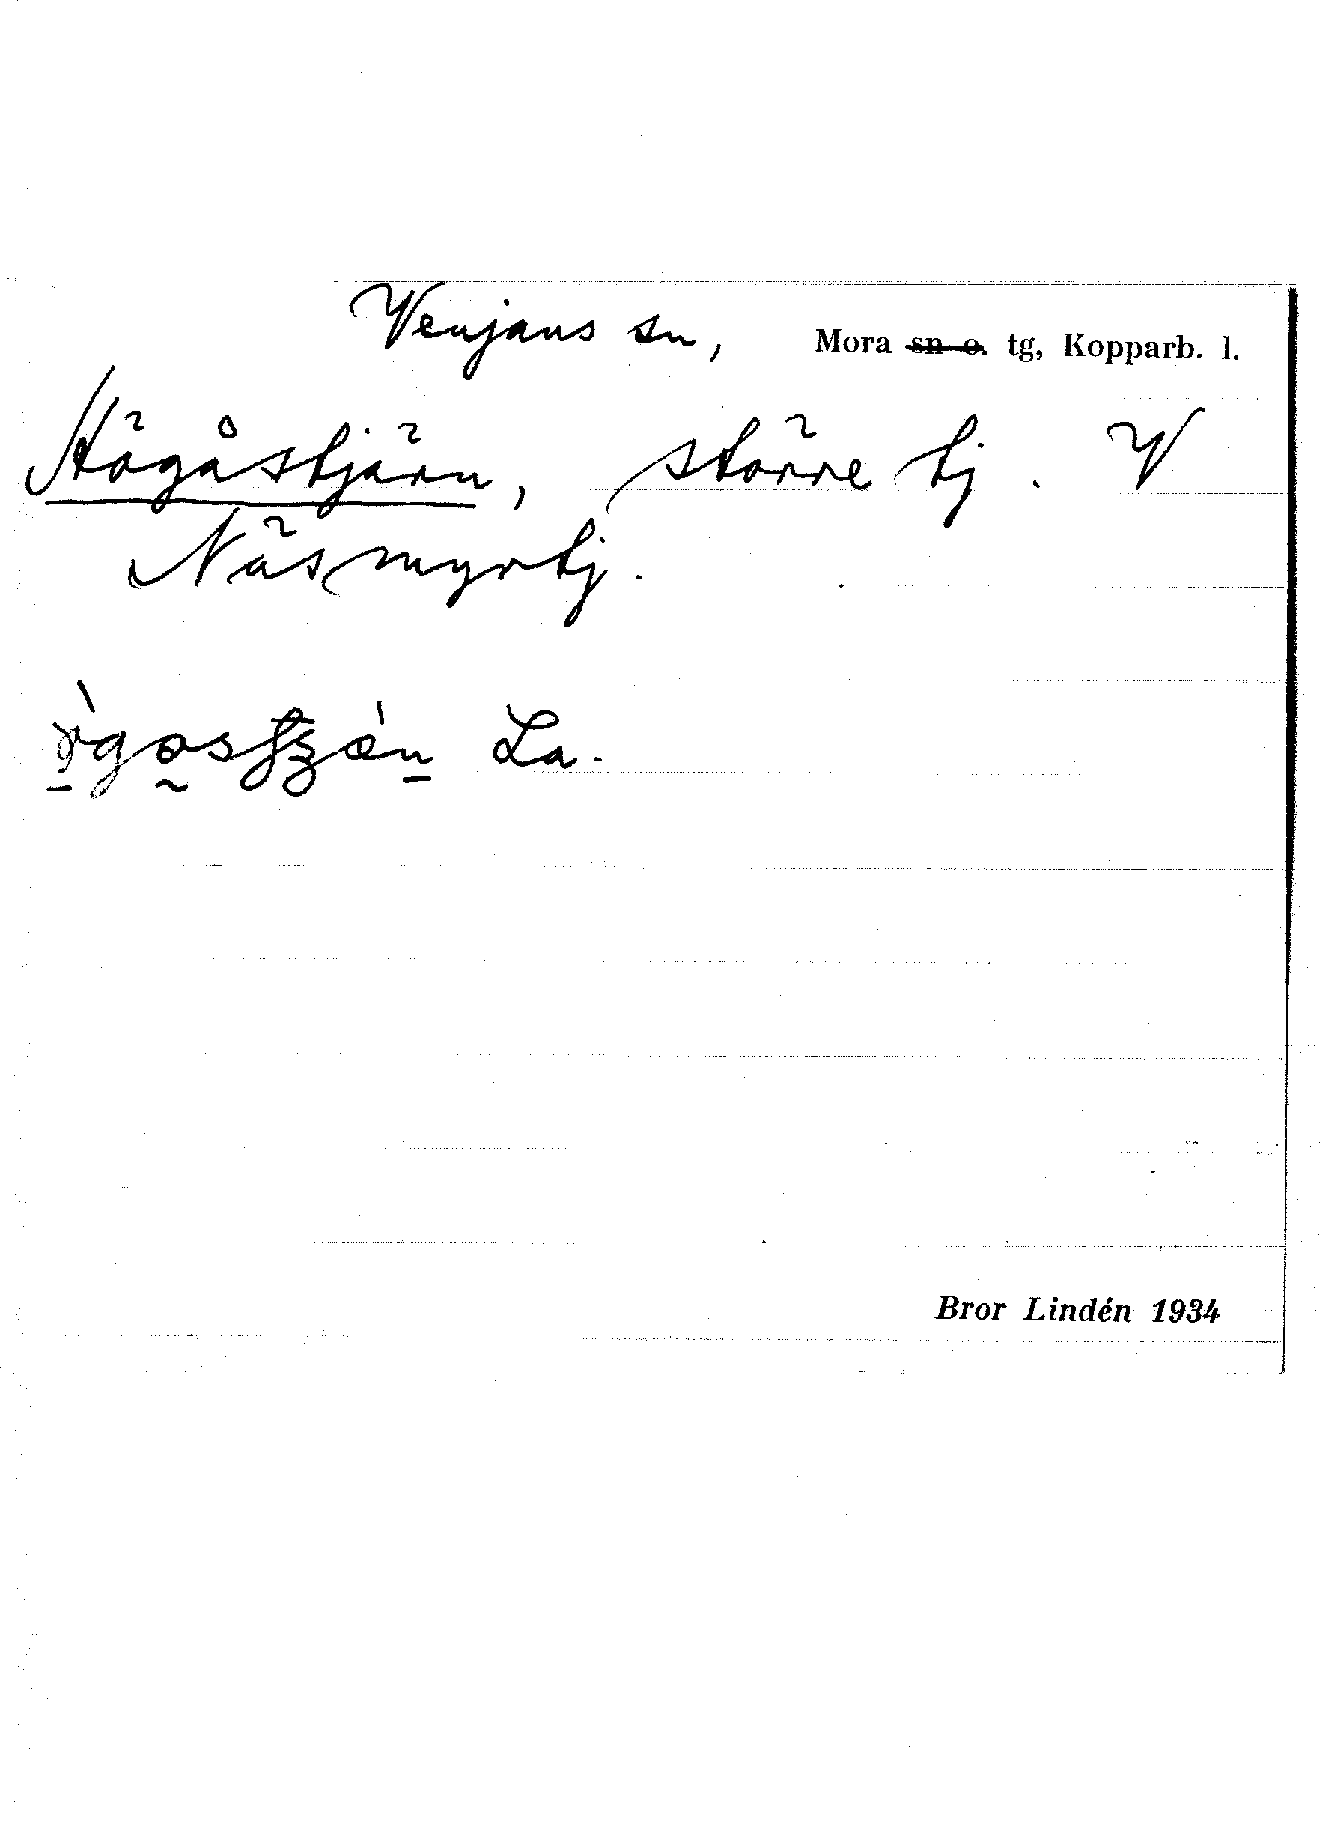 Venjans sn, Mora ~~sn o.~~ tg, Kopparb. l.
Högåstjärn, större tj. V
Näsmyrtj.
La.
Bror Lindén 1934